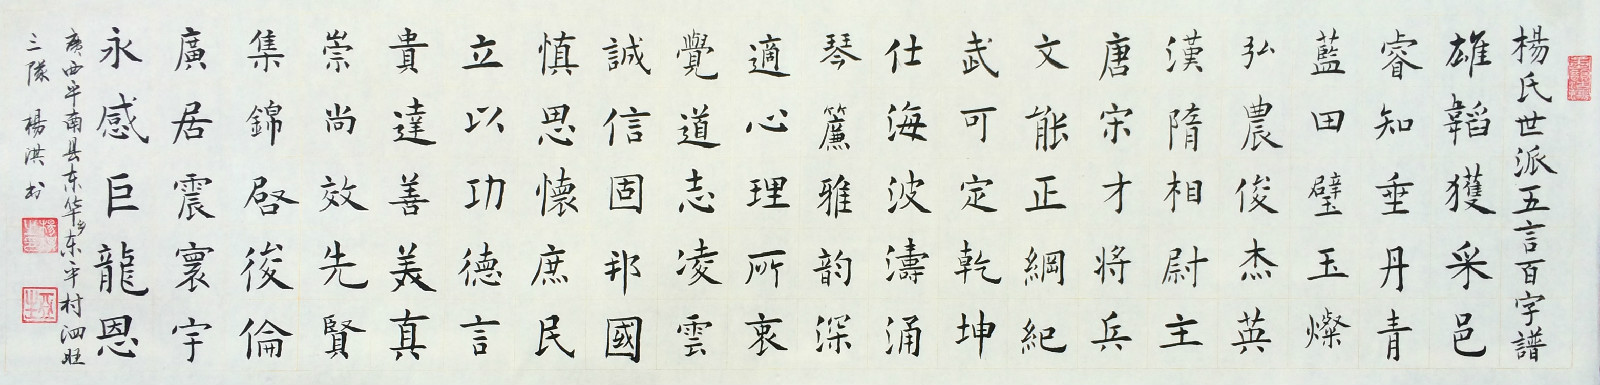 楊氏世派五言百字譜
雄韜獲采邑
睿知垂丹青
藍田璧玉燦
弘農俊杰英
漢隋相尉主
唐宋才將兵
文能正綱紀
武可定乾坤
仕海波濤涌
琴簾雅韵深
適心理所衷
覺道志凌雲
誠信固邦國
慎思懷庶民
立以功德言
貴達善美真
崇尚效先賢
集錦啓後倫
廣居震寰宇
永感巨龍恩
廣西平南县东华乡东平村泗旺
三隊 楊洪书